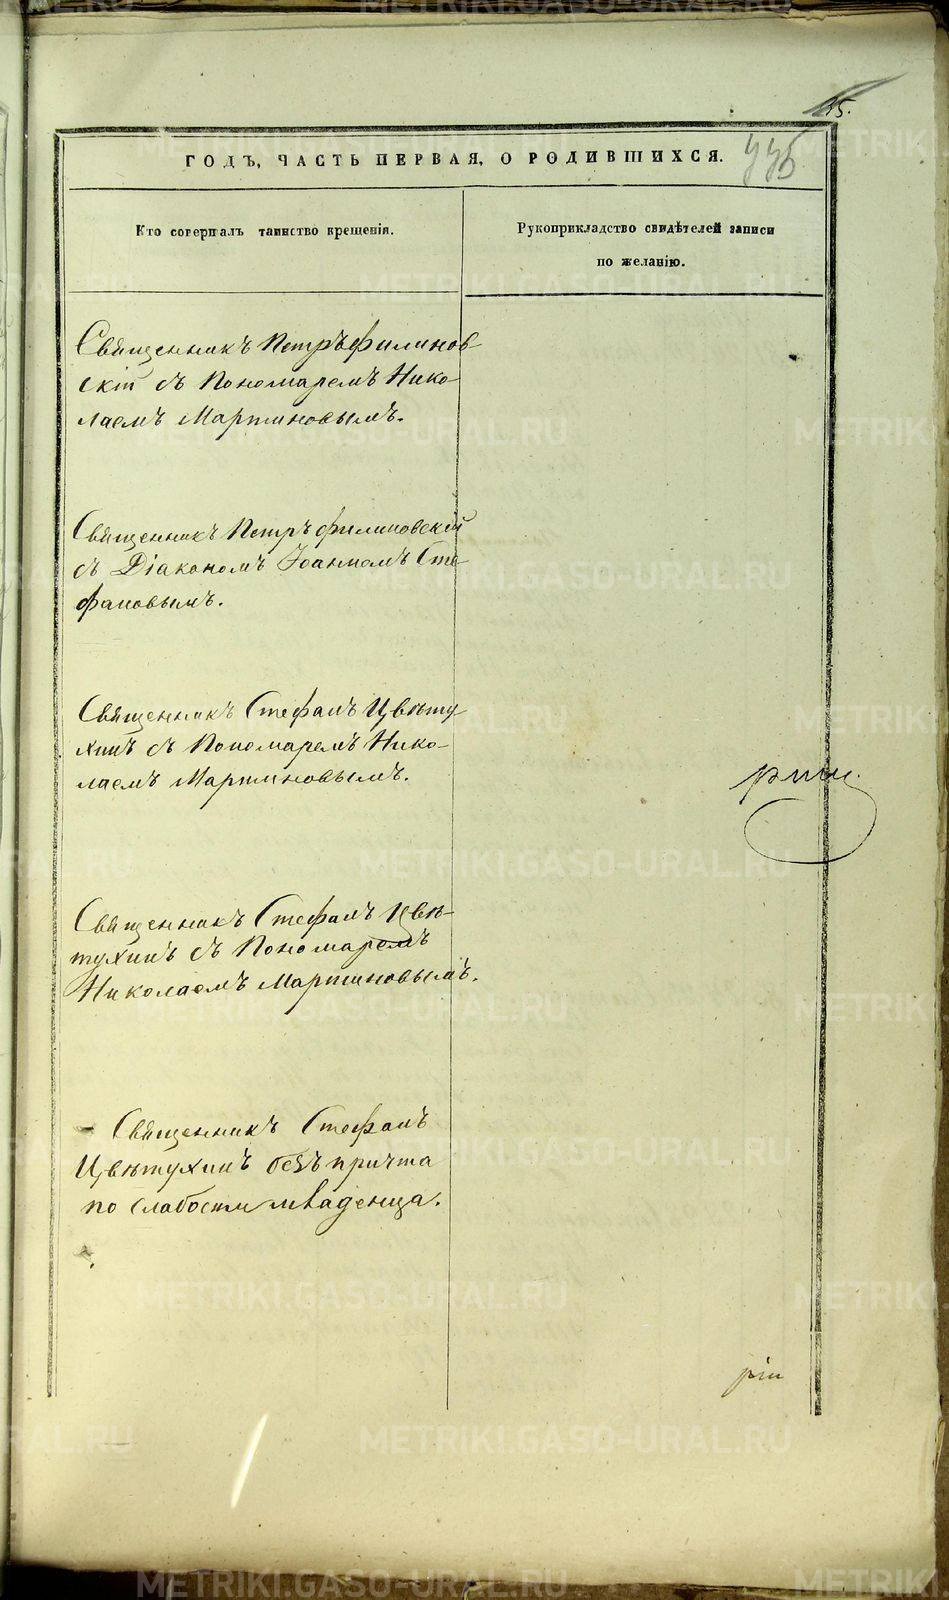 35.
ГОДЪ, ЧАСТЬ ПЕРВАЯ, О РОДИВШИХСЯ.
Кто совершалъ таинство крещенія.
Рукоприкладство свидѣтелей записи
по желанію.
Священникъ Петръ Филинов-
скій съ Пономаремъ Нико-
лаемъ Мартиновымъ.
Священникъ Петръ Филиновскій
съ Діакономъ Іоанномъ Сте-
фановымъ.
Священникъ Стефанъ Цвѣту-
хинъ съ Пономаремъ Нико-
лаемъ Мартиновымъ.
Священникъ Стефанъ Цвѣ-
тухинъ съ Пономаремъ
Николаемъ Мартиновымъ.
Священникъ Стефанъ
Цвѣтухинъ безъ причта
по слабости младенца.
METRIKI.GASO-URAL.RU